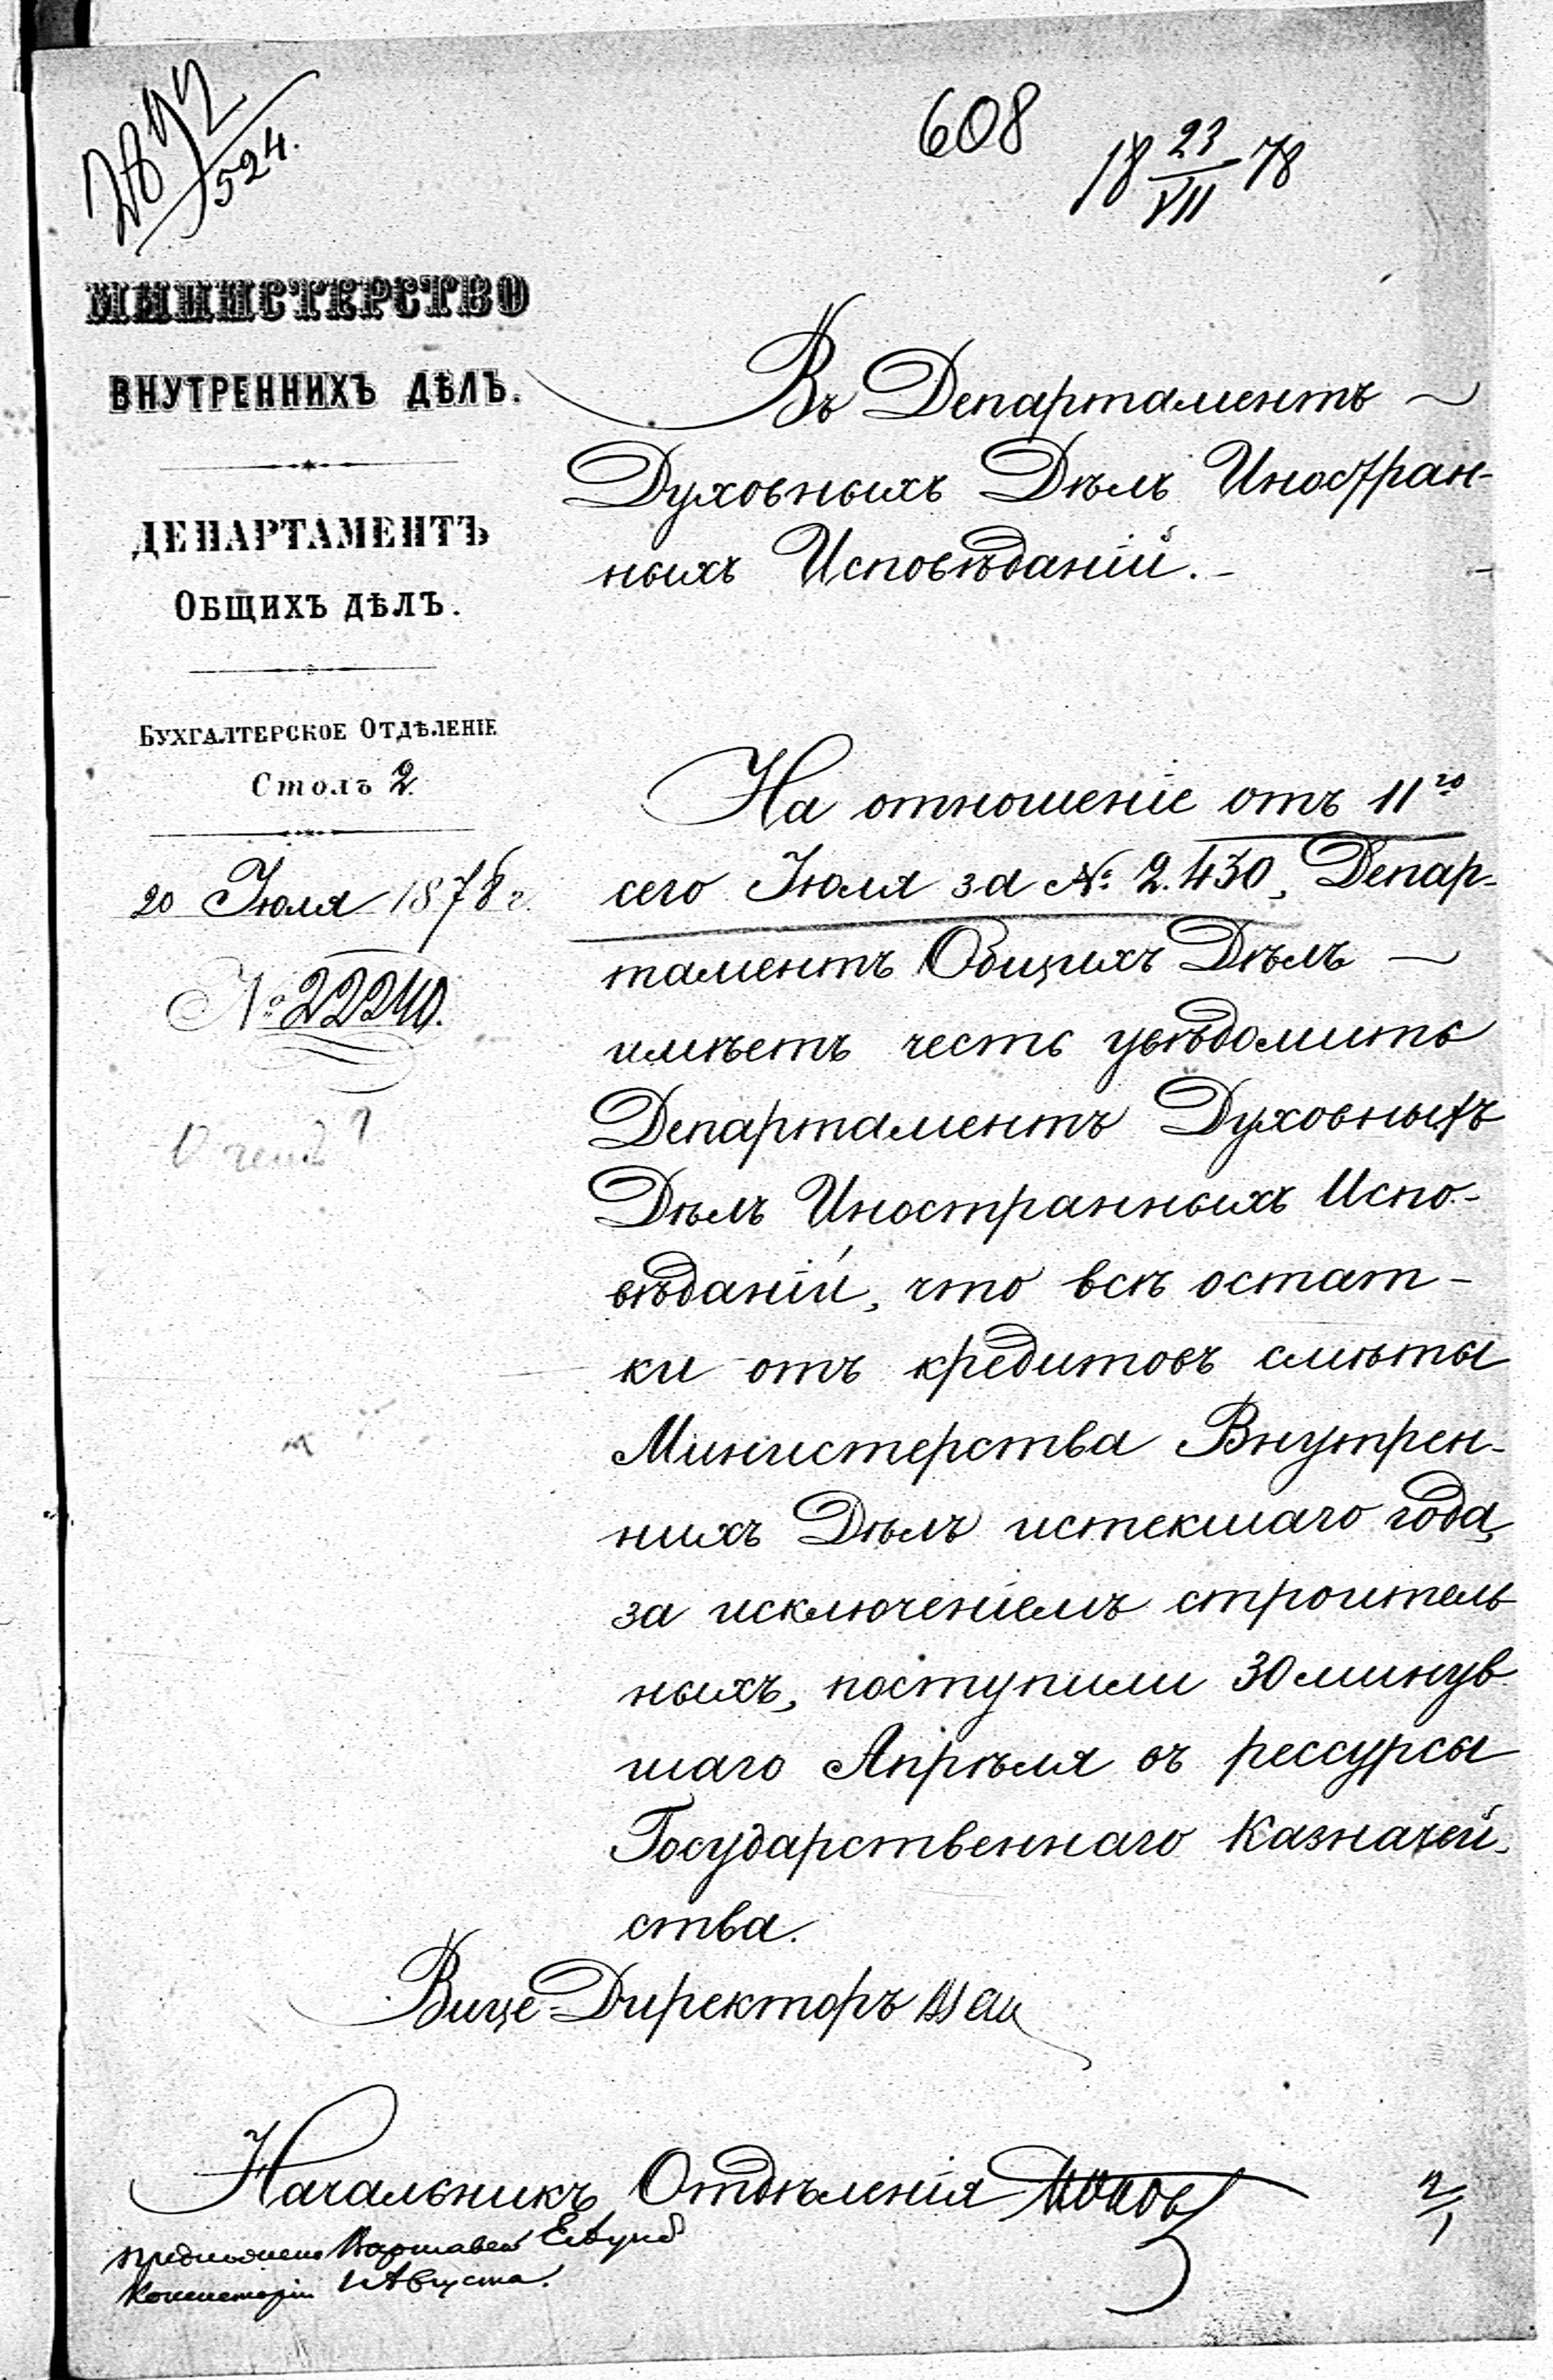 608
18 23/VII 78
524.
МИНИСТЕРСТВО
ВНУТРЕННИХЪ ДѢЛЪ.
ДЕПАРТАМЕНТЪ
ОБЩИХЪ ДѢЛЪ.
БУХГАЛТЕРСКОЕ ОТДѢЛЕНІЕ
Столъ 2
20 Іюля 1878 г.
№ 22240.
Въ Департаментъ
Духовныхъ Дѣлъ Иностран-
ныхъ Исповѣданій.
На отношеніе отъ 11го
сего Іюля за № 2.430, Депар-
таментъ Общихъ Дѣлъ
имѣетъ честь увѣдомить
Департаментъ Духовныхъ
Дѣлъ Иностранныхъ Испо-
вѣданій, что всѣ остат-
ки отъ кредитовъ смѣты
Министерства Внутрен-
нихъ Дѣлъ истекшаго года,
за исключеніемъ строитель
ныхъ, поступили 30 минув
шаго Апрѣля въ рессурсы
Государственнаго Казначей-
ства.
Вице-Директоръ
Начальникъ Отдѣленія
Августа.